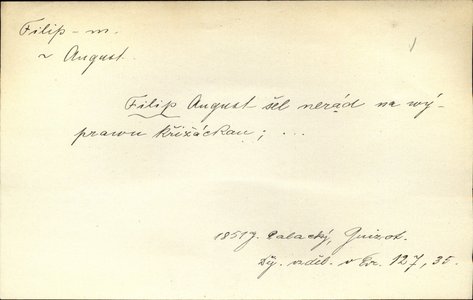 Filip – m.
~ August
Filip August šel nerád na vý-
pravu křižáckau; ...
1851 J. Palacký, Guizot.
Dj. vzděl. v Evr. 127, 30.